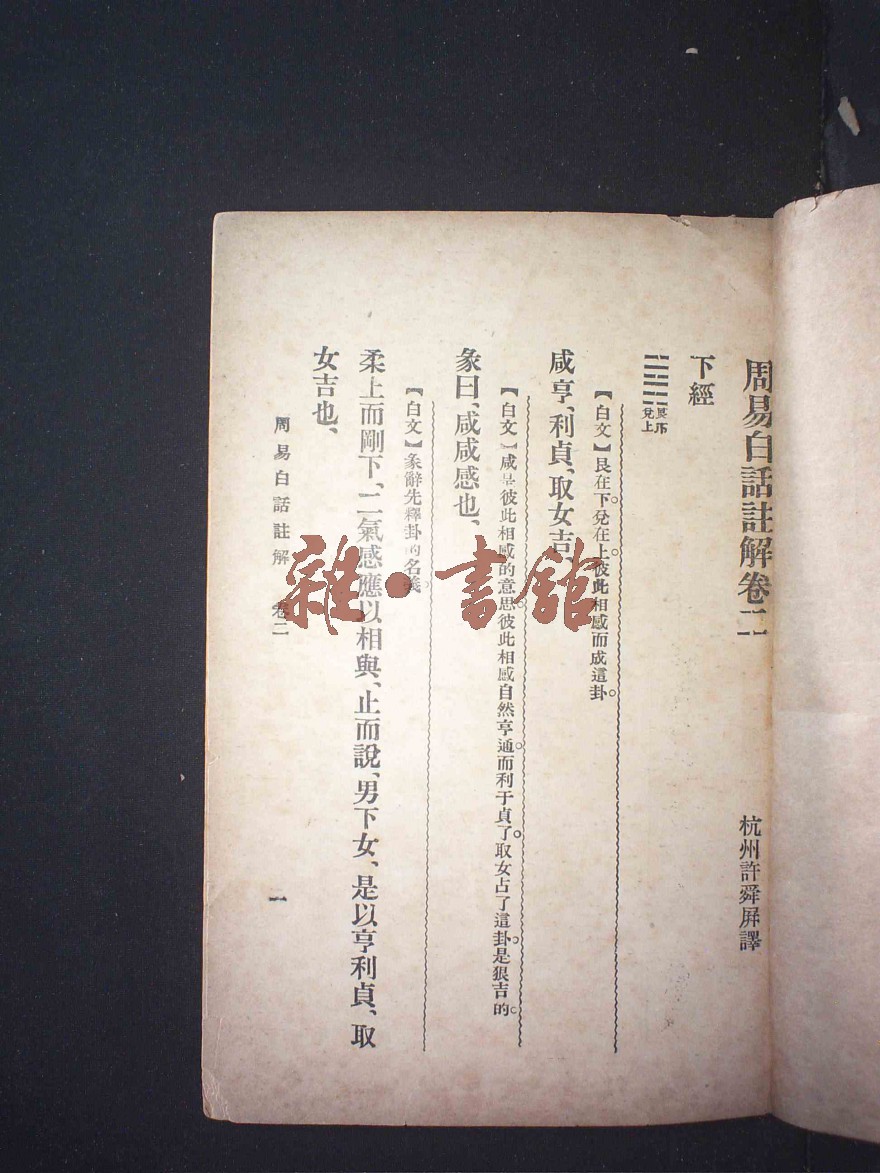 周易白話註解卷二
杭州許舜屏譯
下經
艮下
兌上
咸亨、利貞、取女吉、
【白文】艮在下。兌在上。彼此相感而成這卦。
【白文】咸是彼此相感的意思。彼此相感自然亨通。而利于貞了。取女占了這卦。是狠吉的。
彖曰、咸咸感也、
【白文】彖辭先釋卦的名義。
柔上而剛下、二氣感應以相與、止而說、男下女、是以亨利貞、取
女吉也、
周易白話註解 卷二
一
雜·書館